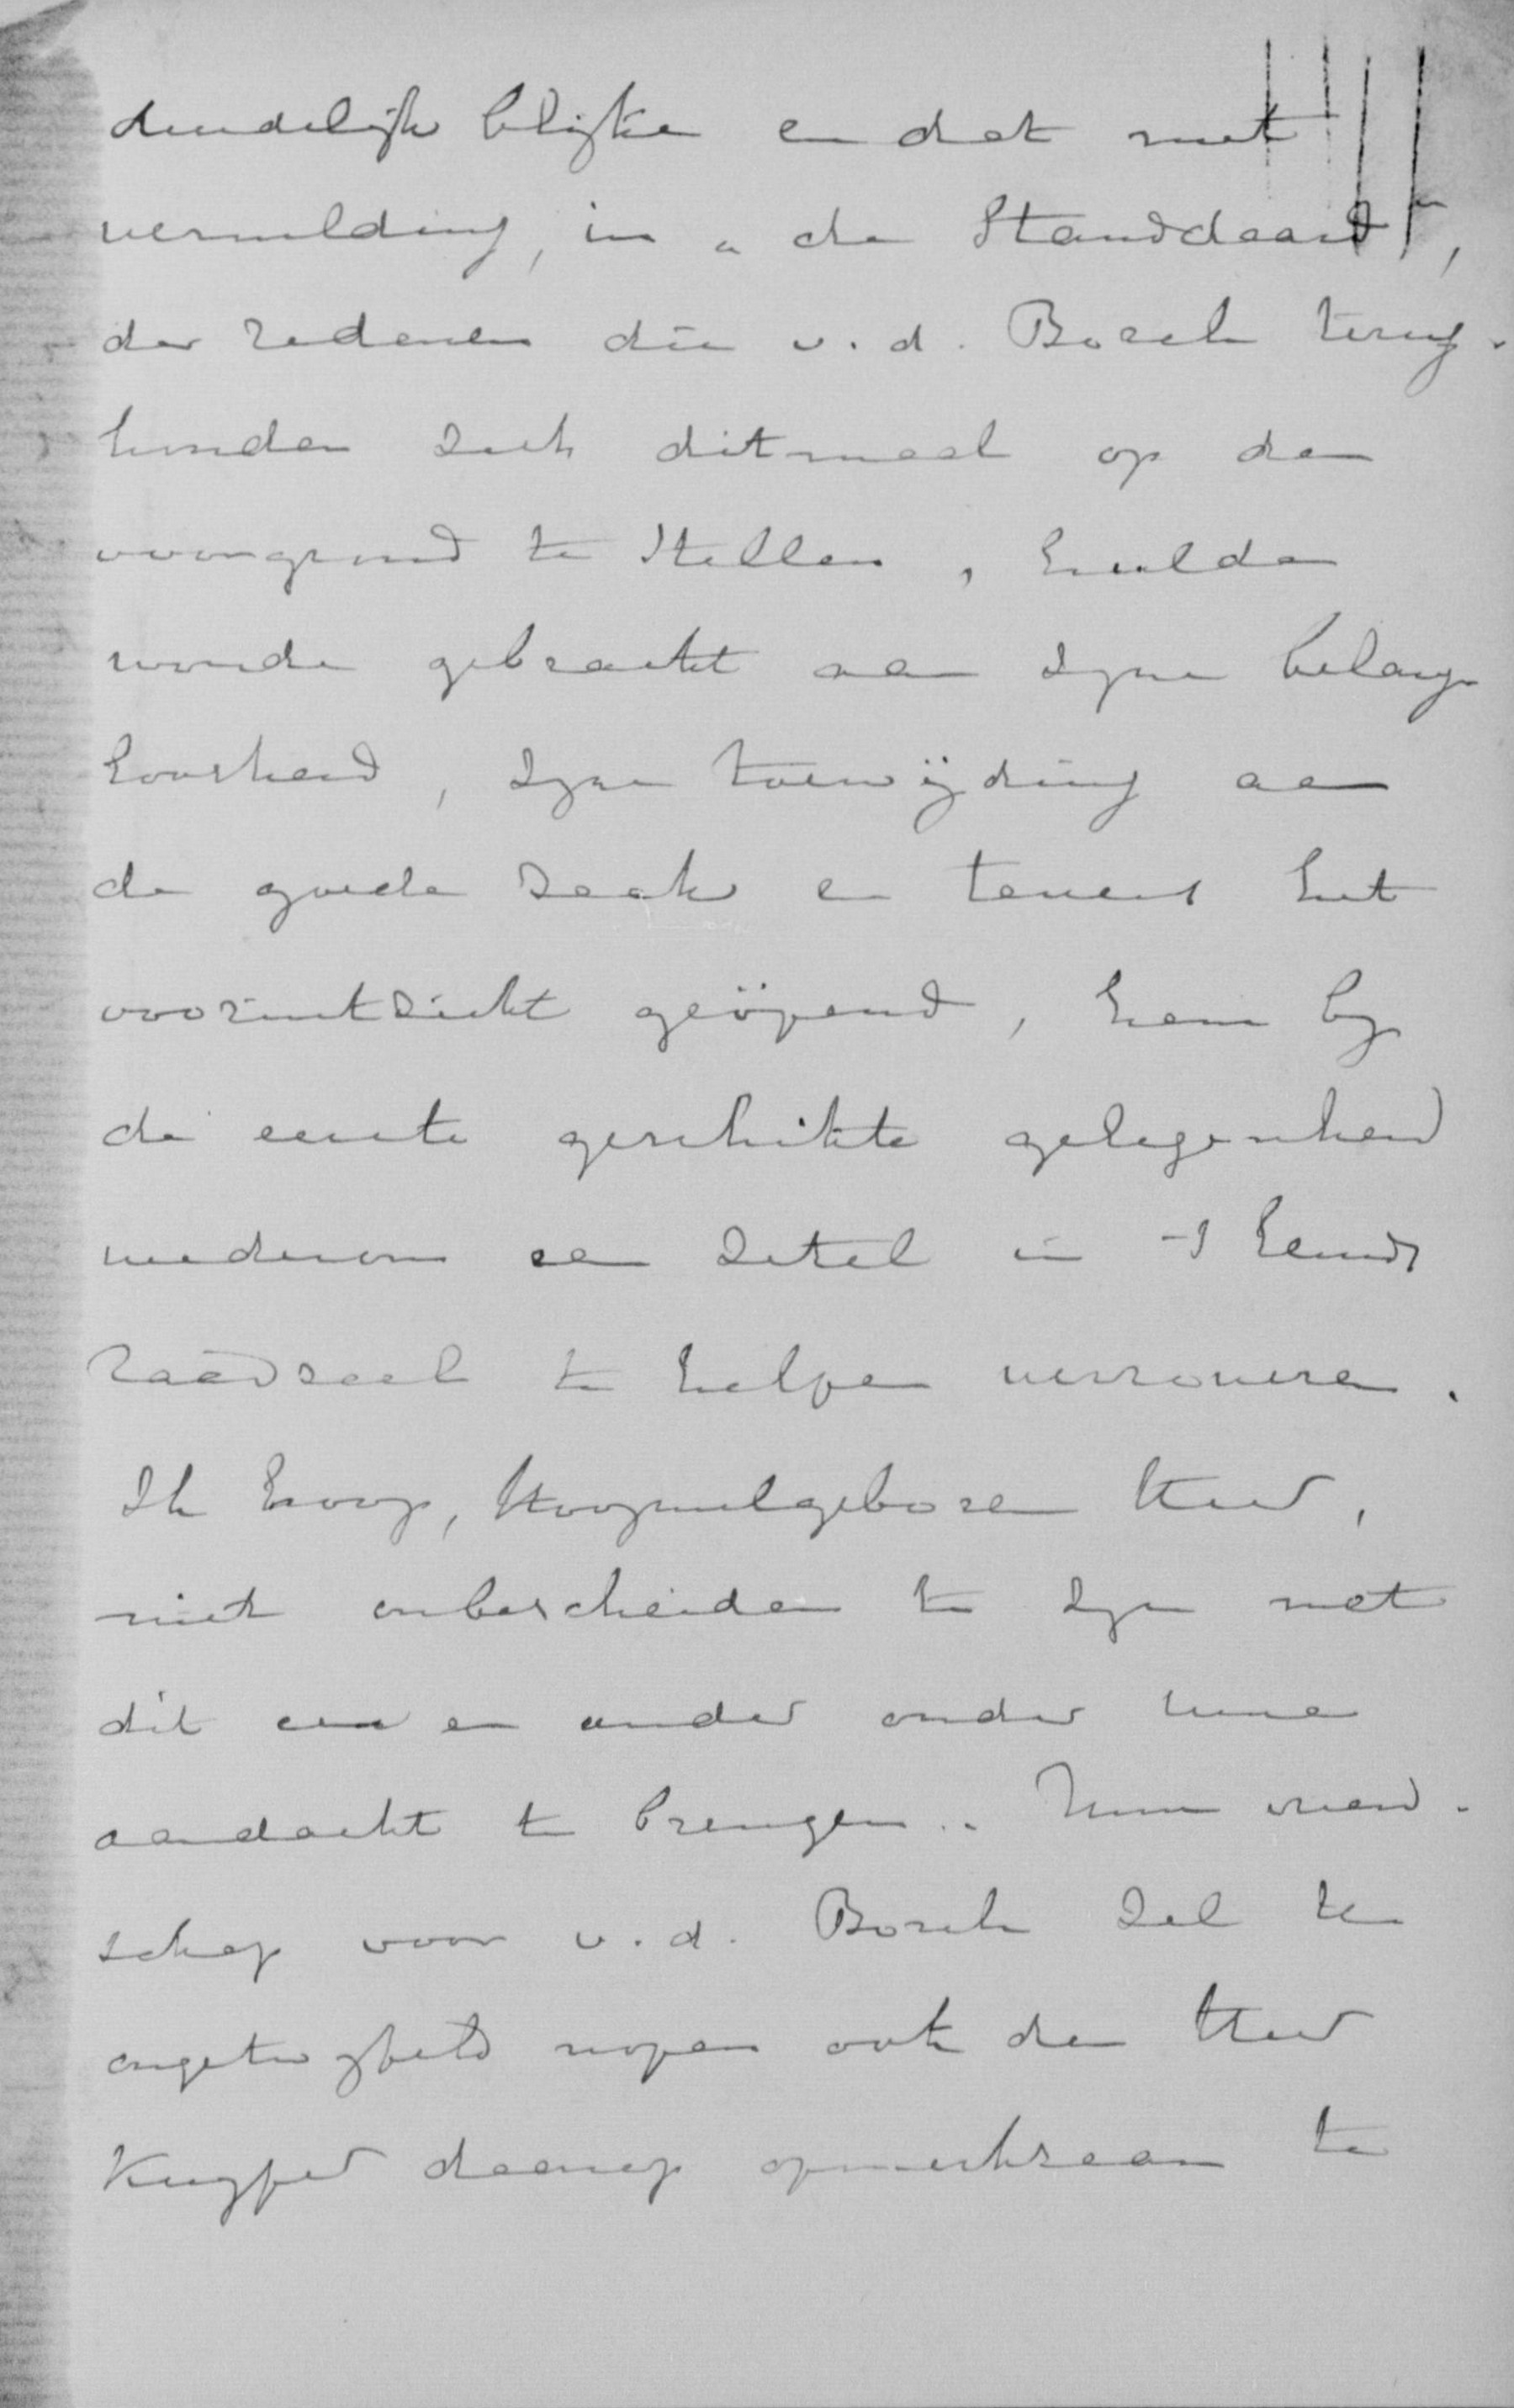 duidelijk blijke en dat met
vermelding, in „de Standdaard",
der redenen die v. d. Bosch terug-
houden zich ditmaal op den
voorgrond te stellen, hulde
worde gebracht aan zyne belang-
loosheid, zyne toewijding aan
de goede zaak en tevens het
vooruitzicht geöpend, hem by
de eerste geschikte gelegenheid
wederom een zetel in 's Lands
raadzaal te helpen veroveren.
Ik hoop, Hoogwelgeboren Heer,
niet onbescheiden te zyn met
dit een en ander onder uwe
aandacht te brengen. Uwe vriend-
schap voor v. d. Bosch zal U
ongetwyfeld nopen ook den Heer
Kuyper daarop opmerkzaam te